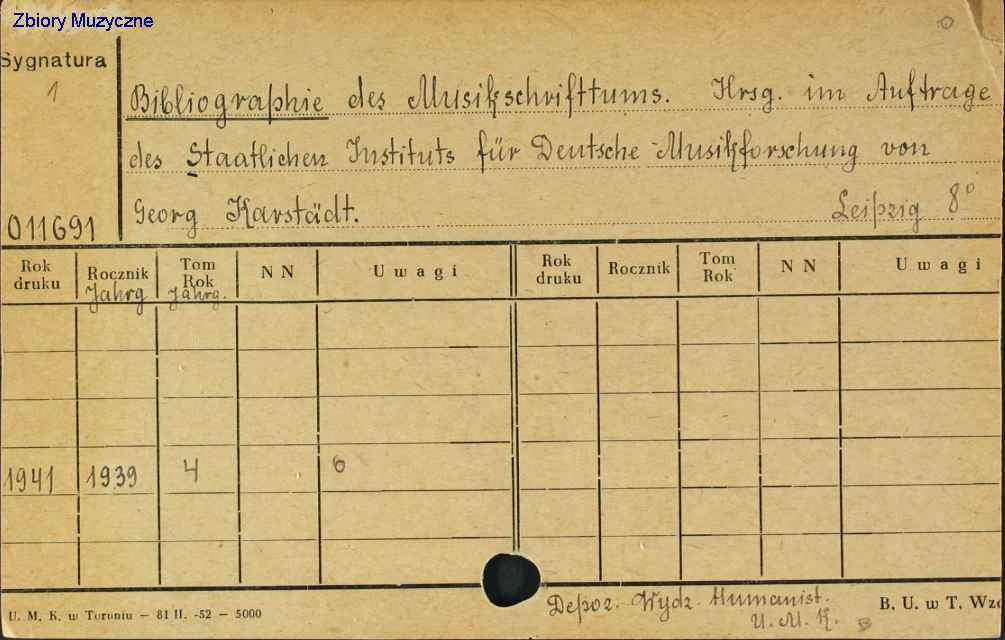 Zbiory Muzyczne
Sygnatura
1
011691
Bibliographie des Musikschrifttums. Hrsg. im Auftrage
des Staatlichen Instituts für Deutsche Musikforschung von
Georg Karstädt. Leipzig 8°
Rok druku Rocznik Jahrg Tom Rok Jahrg. N N Uwagi Rok druku Rocznik Tom Rok N N Uwagi
1941 1939 4 6
U. M. K. w Toruniu — 81 II. -52 — 5000
Depoz. Wydz. Humanist.
U. M. K.
B. U. w T. Wzó